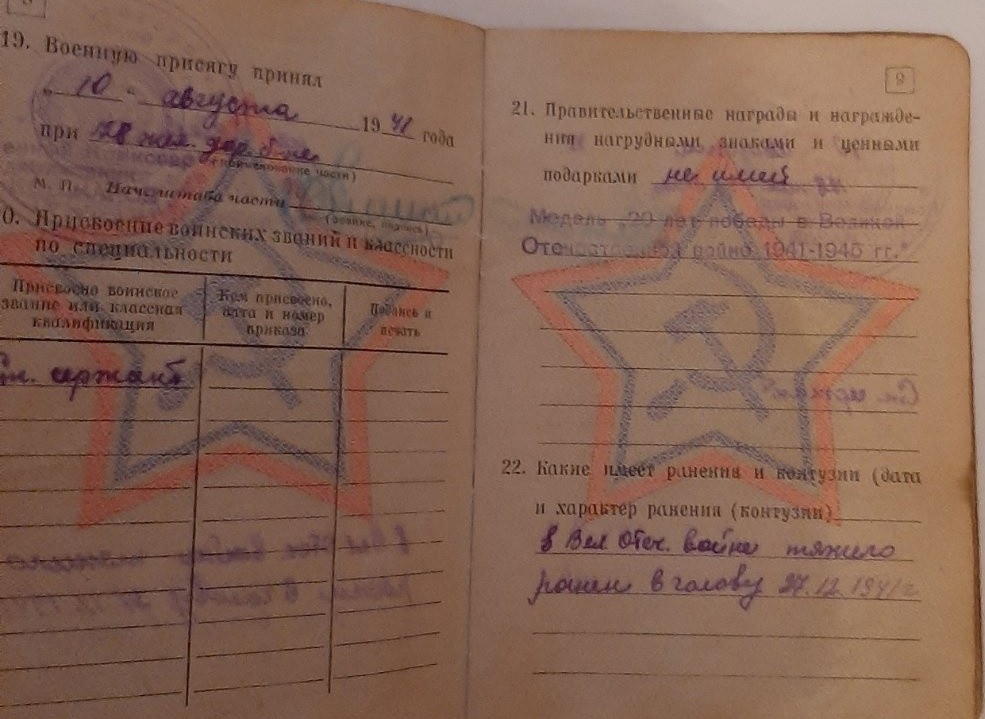 19. Военную присягу принял
„ 10 “ августа 19 41 года
при
(наименование части)
М. П. Нач. штаба части
(звание, подпись)
0. Присвоение воинских званий и классности
по специальности
Присвоено воинское звание или классная квалификация
Кем присвоено, дата и номер приказа
Подпись и печать
Ст. сержант
9
21. Правительственные награды и награжде-
ния нагрудными знаками и ценными
подарками не имеет
Медаль „20 лет победы в Великой
Отечественной войне 1941-1945 гг.“
22. Какие имеет ранения и контузии (дата
и характер ранения (контузии)
в Вел Отеч. войне тяжело
ранен в голову 27.12.1941 г